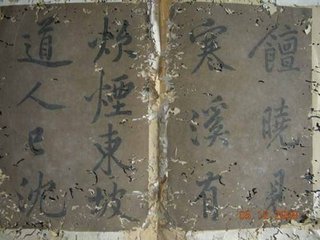 饘曉見
寒溪有
炊煙東坡
道人已沈